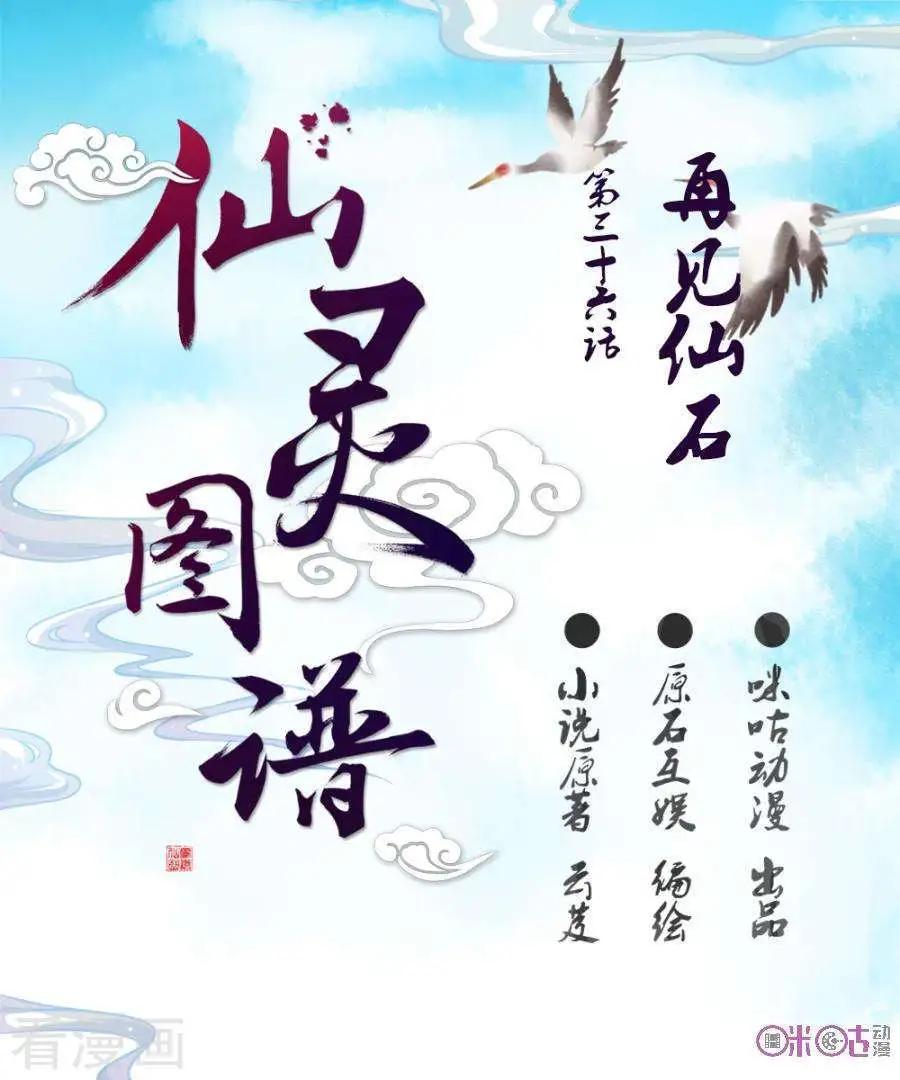 仙灵图谱
再见仙石
第三十六话
咪咕动漫 出品
原石互娱 编绘
小说原著 云芨
看漫画
咪咕动漫